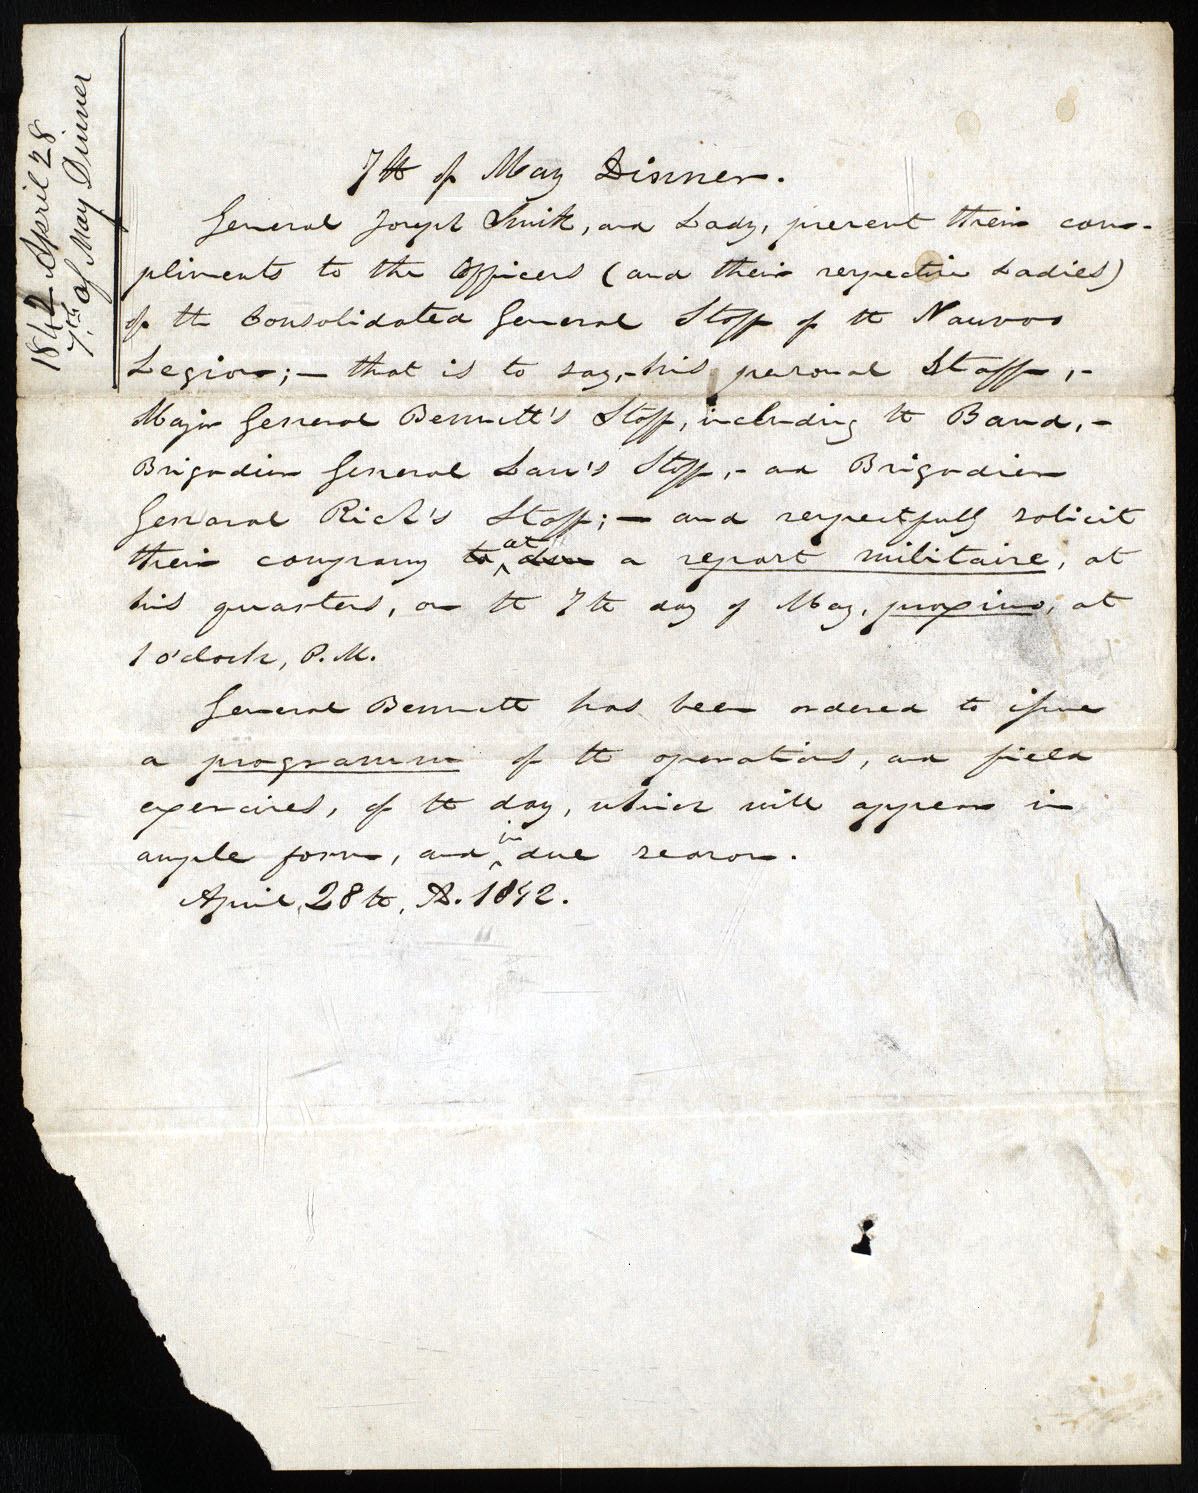 1842 April 28
7th of May Dinner
7th of May Dinner.
General Joseph Smith, and Lady, present their com-
pliments to the Officers (and their respective Ladies)
of the Consolidated General Staff of the Nauvoo
Legion;— that is to say,- his personal Staff,-
Major General Bennett's Staff, including the Band,-
Brigadier General Law's Staff,- and Brigadier
General Rich's Staff;— and respectfully solicit
their company to at a repast militaire, at
his quarters, on the 7th day of May, proximo, at
1 o'clock, P.M.
General Bennett has been ordered to issue
a programm of the operations, and field
exercises, of the day, which will appear in
ample form, and in due season.
April, 28th, A. 1842.